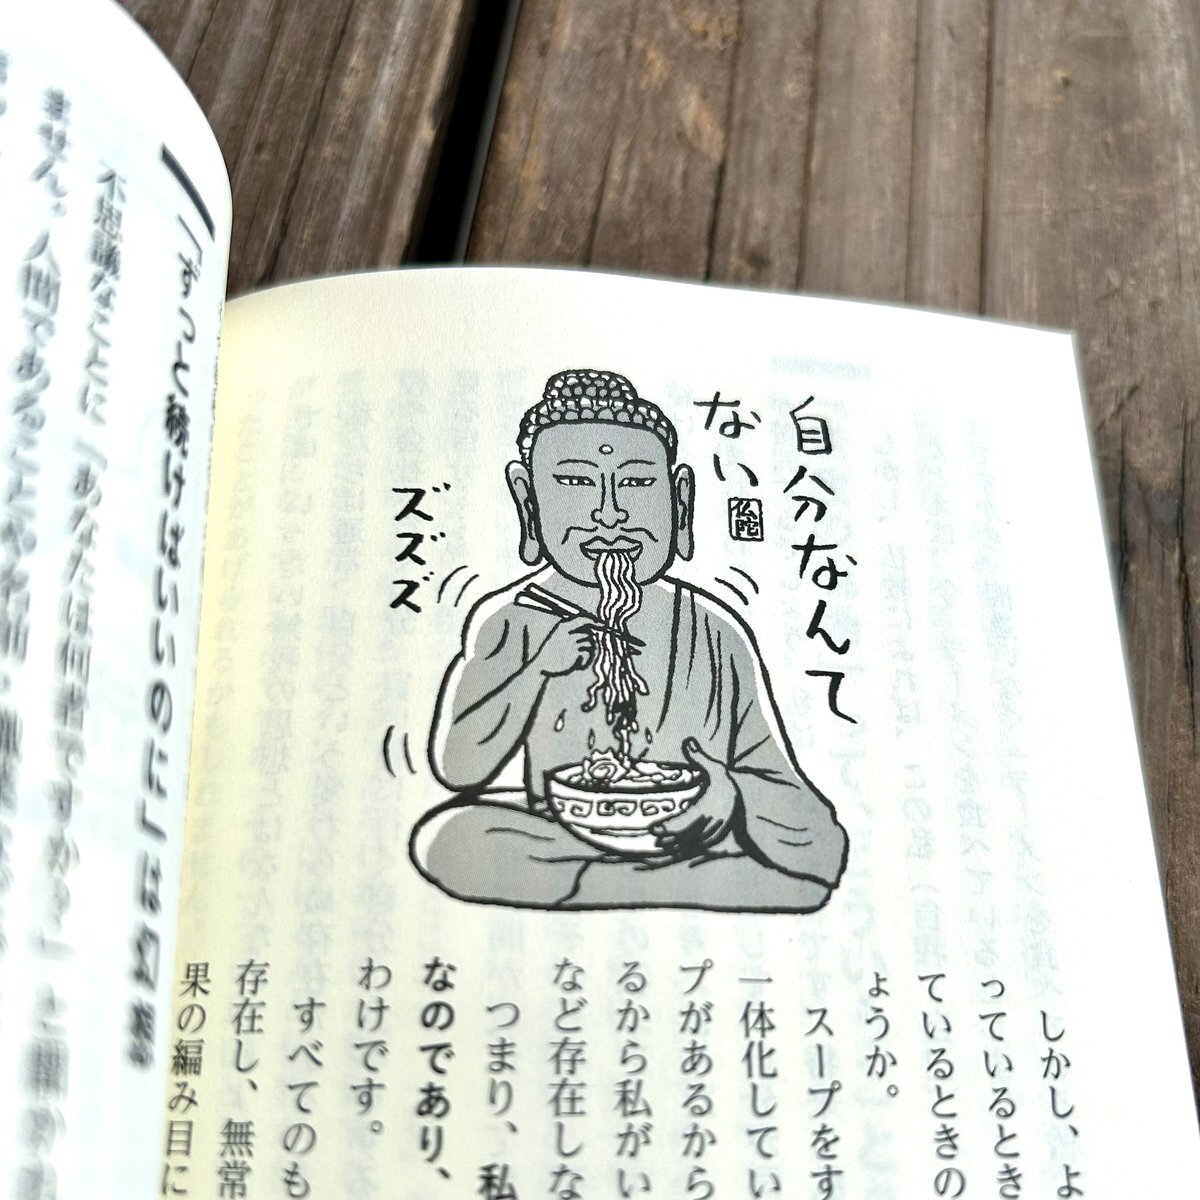 自分なんて
ない
仏陀
ズズズ
しかし、よ
っているとき
ているときの
ょうか。
スープをす
一体化してい
プがあるから
るから私がい
など存在しな
つまり、私
なのであり、
わけです。
すべてのも
存在し、無常
果の編み目に
「ずっと続けばいいのに」は幻想
不思議なことに「あなたは何者ですか？」と聞かれ
ません。人間であることや名前、職業